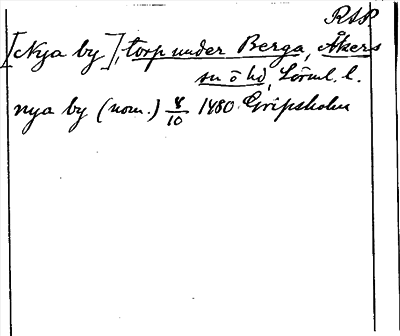 RSP.
[Nya by], torp under Berga, Åkers
sn o hd, Sörml. l.
nya by (nom.) 8/10 1480 Gripsholm